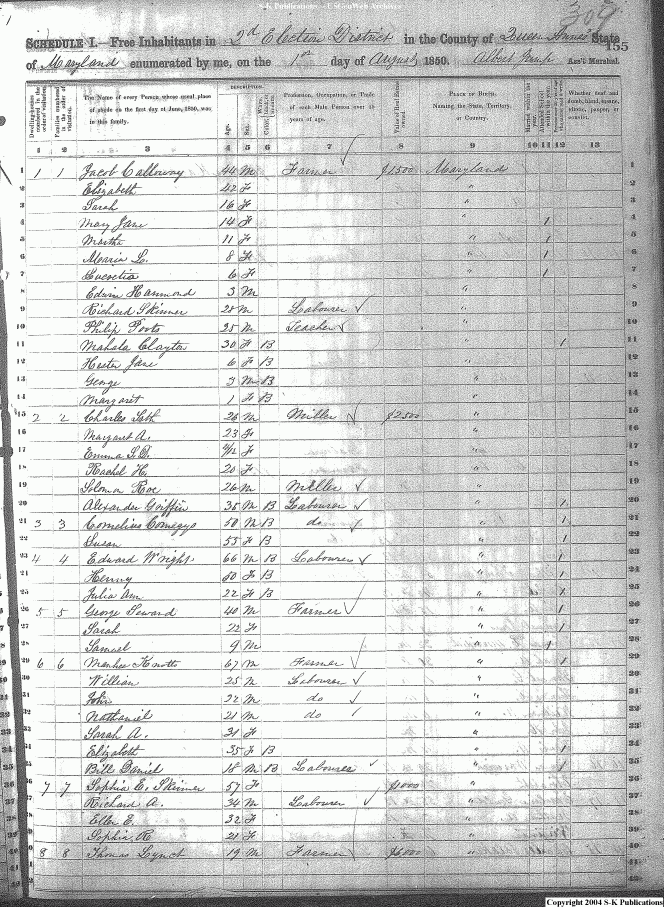 S-K Publications - USGenWeb Archives
309
SCHEDULE I.—Free Inhabitants in 2d Election District in the County of Queen Anne's State
of Maryland enumerated by me, on the 1st day of August, 1850. Albert Ass't Marshal. 155
Dwelling-houses numbered in the order of visitation.
Families numbered in the order of visitation.
The Name of every Person whose usual place of abode on the first day of June, 1850, was in this family.
DESCRIPTION.
Age. Sex. White, black, or mulatto.
Profession, Occupation, or Trade of each Male Person over 15 years of age.
Value of Real Estate owned.
PLACE OF BIRTH. Naming the State, Territory, or Country.
Married within the year.
Whether deaf and dumb, blind, insane, idiotic, pauper, or convict.
1 2 3 4 5 6 7 8 9 10 11 12 13
1 1 1 Jacob Calloway 44 M Farmer $1500 Maryland 1
2 Elizabeth 42 F " 2
3 Sarah 16 F " 3
4 Mary Jane 14 F " 1 4
5 Martha 11 F " 1 5
6 Maria L. 8 F " 1 6
7 Lucretia 6 F " 1 7
8 Edwin Hammond 3 M " 8
9 Richard Skinner 28 M Labourer " 9
10 Philip Foots 25 M Teacher " 10
11 Mahala Clayton 30 F B " 1 11
12 Hester Jane 6 F B " 12
13 George 3 M B " 13
14 Margaret 1 F B " 14
15 2 2 Charles 26 M Miller $2500 " 15
16 Margaret A. 23 F " 16
17 Emma F " 17
18 Rachel H. 20 F " 18
19 Solomon Roe 26 M Miller " 19
20 Alexander Griffin 35 M B Labourer " 1 20
21 3 3 Cornelius Comegys 50 M B do " 1 21
22 Susan 53 F B " 1 22
23 4 4 Edward Wright 66 M B Labourer " 1 23
24 Henny 50 F B " 1 24
25 Julia Ann 22 F B " 1 25
26 5 5 George Seward 40 M Farmer " 1 26
27 Sarah 22 F " 1 27
28 Samuel 9 M " 1 28
29 6 6 Knotts 67 M Farmer " 1 29
30 William 25 M Labourer " 30
31 John 22 M do " 31
32 Nathaniel 21 M do " 32
33 Sarah A. 31 F " 33
34 Elizabeth 35 F B " 1 34
35 Bill Daniel 18 M B Labourer " 1 35
36 7 7 Sophia E. Skinner 57 F $1000 " 36
37 Richard A. 34 M Labourer " 37
38 Ellen E. 32 F " 38
39 Sophia R 21 F " 39
40 8 8 Thomas Lynch 19 M Farmer $6000 " 40
Copyright 2004 S-K Publications